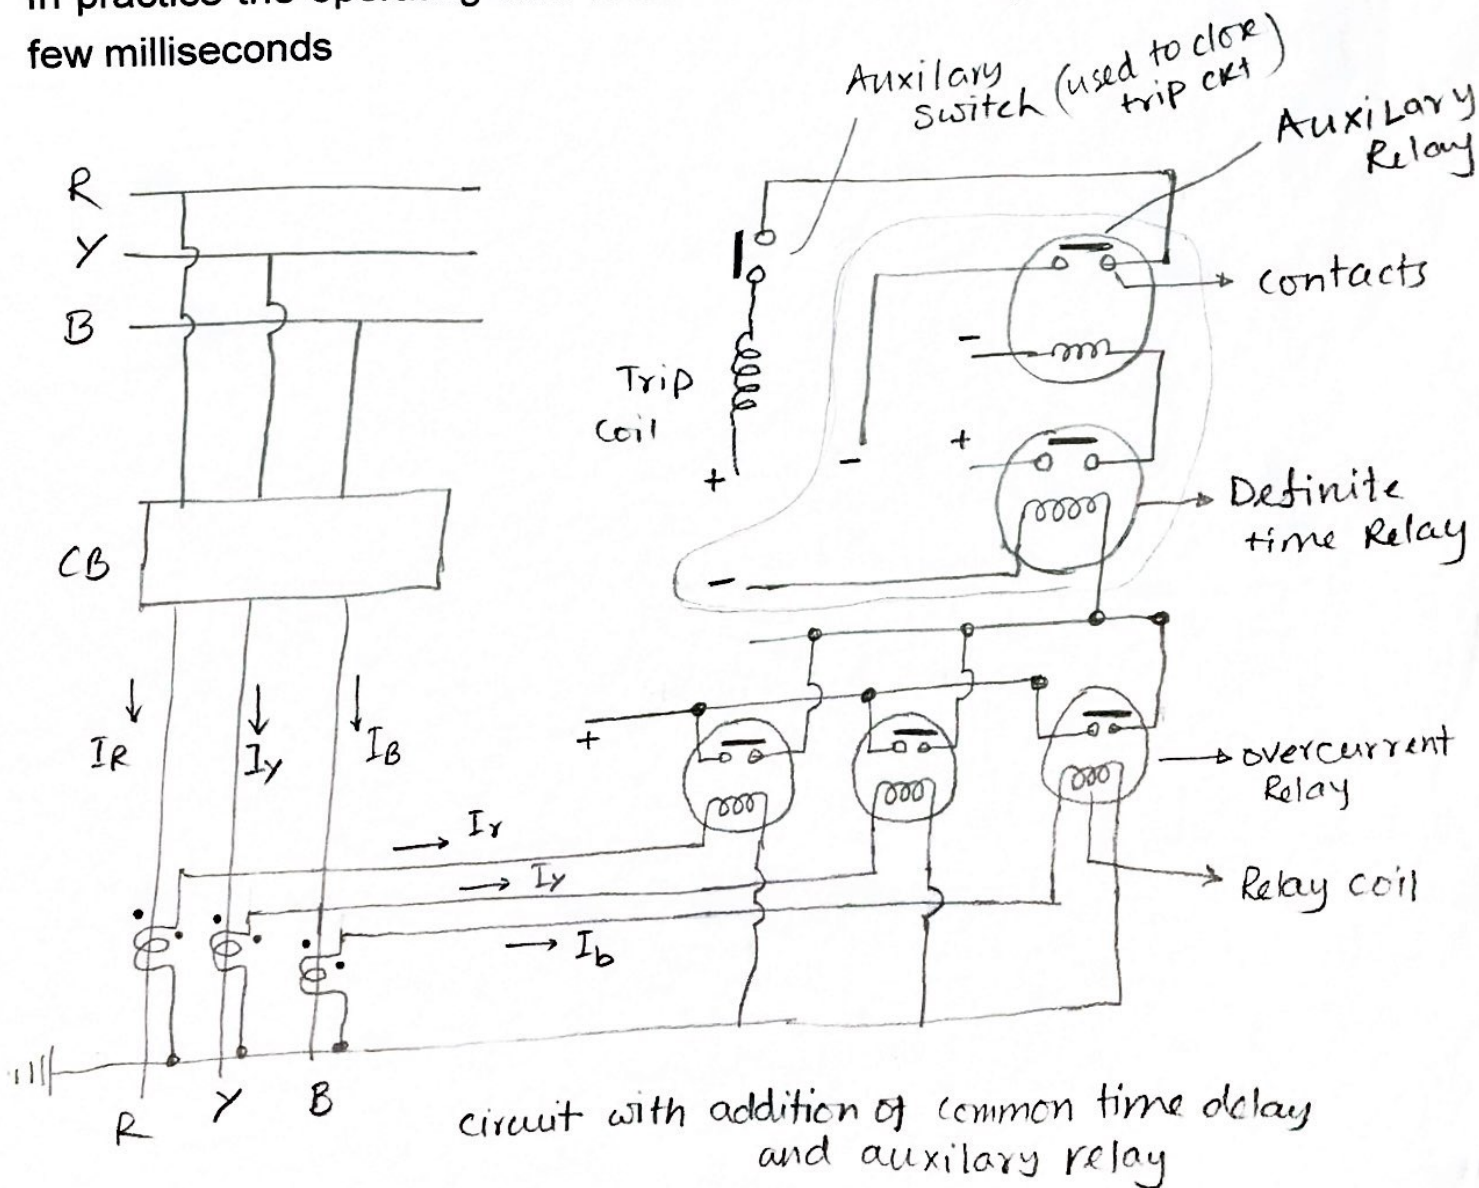 few milliseconds
Auxilary
switch (used to close)
trip ckt
Auxilary
Relay
R
Y
B
contacts
-
Trip
coil
+
-
+
Definite
time Relay
-
CB
IR
IY
IB
+
overcurrent
Relay
Ir
Iy
Relay coil
Ib
R
Y
B
circuit with addition of common time delay
and auxilary relay